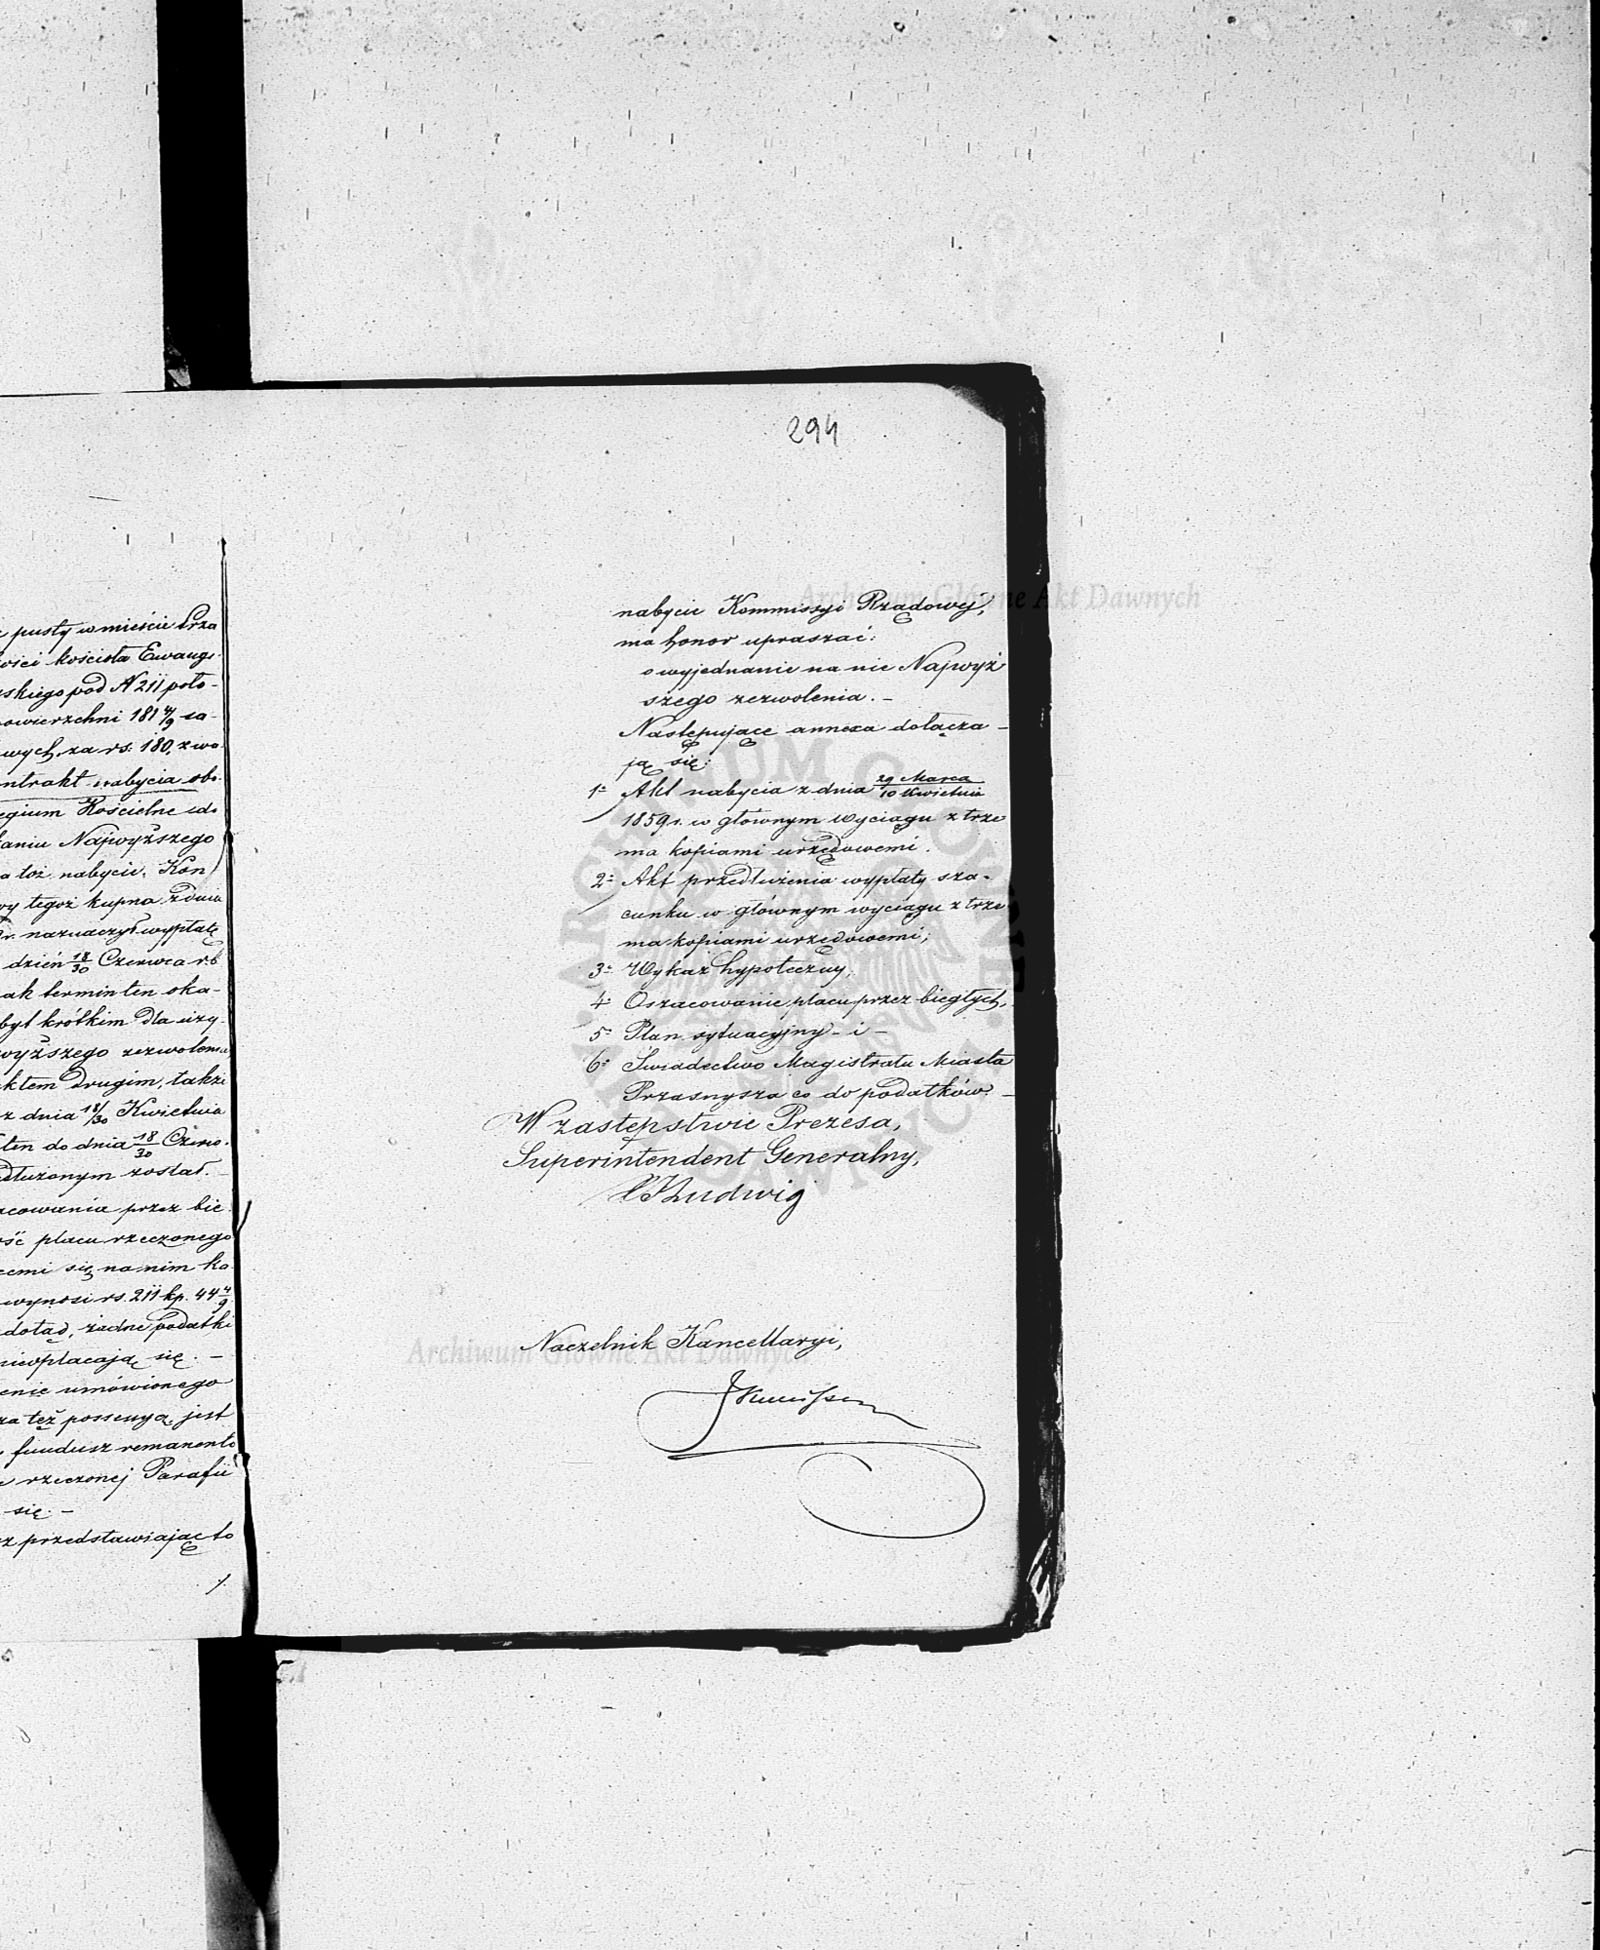 pusty w mieście Prza
ości kościoła Ewang.
skiego pod N 211 poło-
owierzchni 181 4/9 są-
wych, za rs. 180, z wa
ntrakt nabycia obo-
egium Kościelne zdo
kaniu Najwyższego
a toż nabycie. Kon
wy tegoż kupna z dnia
r. naznaczył wypłatę
dzień 18/30 Czerwca rb
ak termin ten oka-
był krótkim dla uzy-
wyższego zezwolenia
ktem drugim, także
z dnia 18/30 Kwietnia
ten do dnia 18/30 Czerw.
edłużonym został. -
acowania przez bie
ość placu rzeczonego
cemi się na nim ko
wynosi rs. 211 kp. 44 4/9
dotąd, żadne podatki
nieopłacają się. -
enie umówionego
za też possessyą, jest
fundusz remanento
rzeczonej Parafii
się. -
z przedstawiając to
294
nabycie Kommissyi Rządowej,
ma honor upraszać:
o wyjednanie na nie Najwyż
szego zezwolenia. -
Następujące annexa dołącza -
ją się:
1o Akt nabycia z dnia 29 Marca/10 Kwietnia
1859 r. w głównym wyciągu z trze
ma kopiami urzędowemi.
2o Akt przedłużenia wypłaty sza-
cunku w głównym wyciągu z trze
ma kopiami urzędowemi;
3o Wykaz hypoteczny,
4o Oszacowanie placu przez biegłych,
5o Plan sytuacyjny - i -
6o Świadectwo Magistratu Miasta
Przasnysza co do podatków. -
W zastępstwie Prezesa,
Superintendent Generalny,
Ludwig
Naczelnik Kancellaryi,
Archiwum Główne Akt Dawnych
Archiwum Główne Akt Dawnych
ARCHIWUM GŁÓWNE AKT DAWNYCH